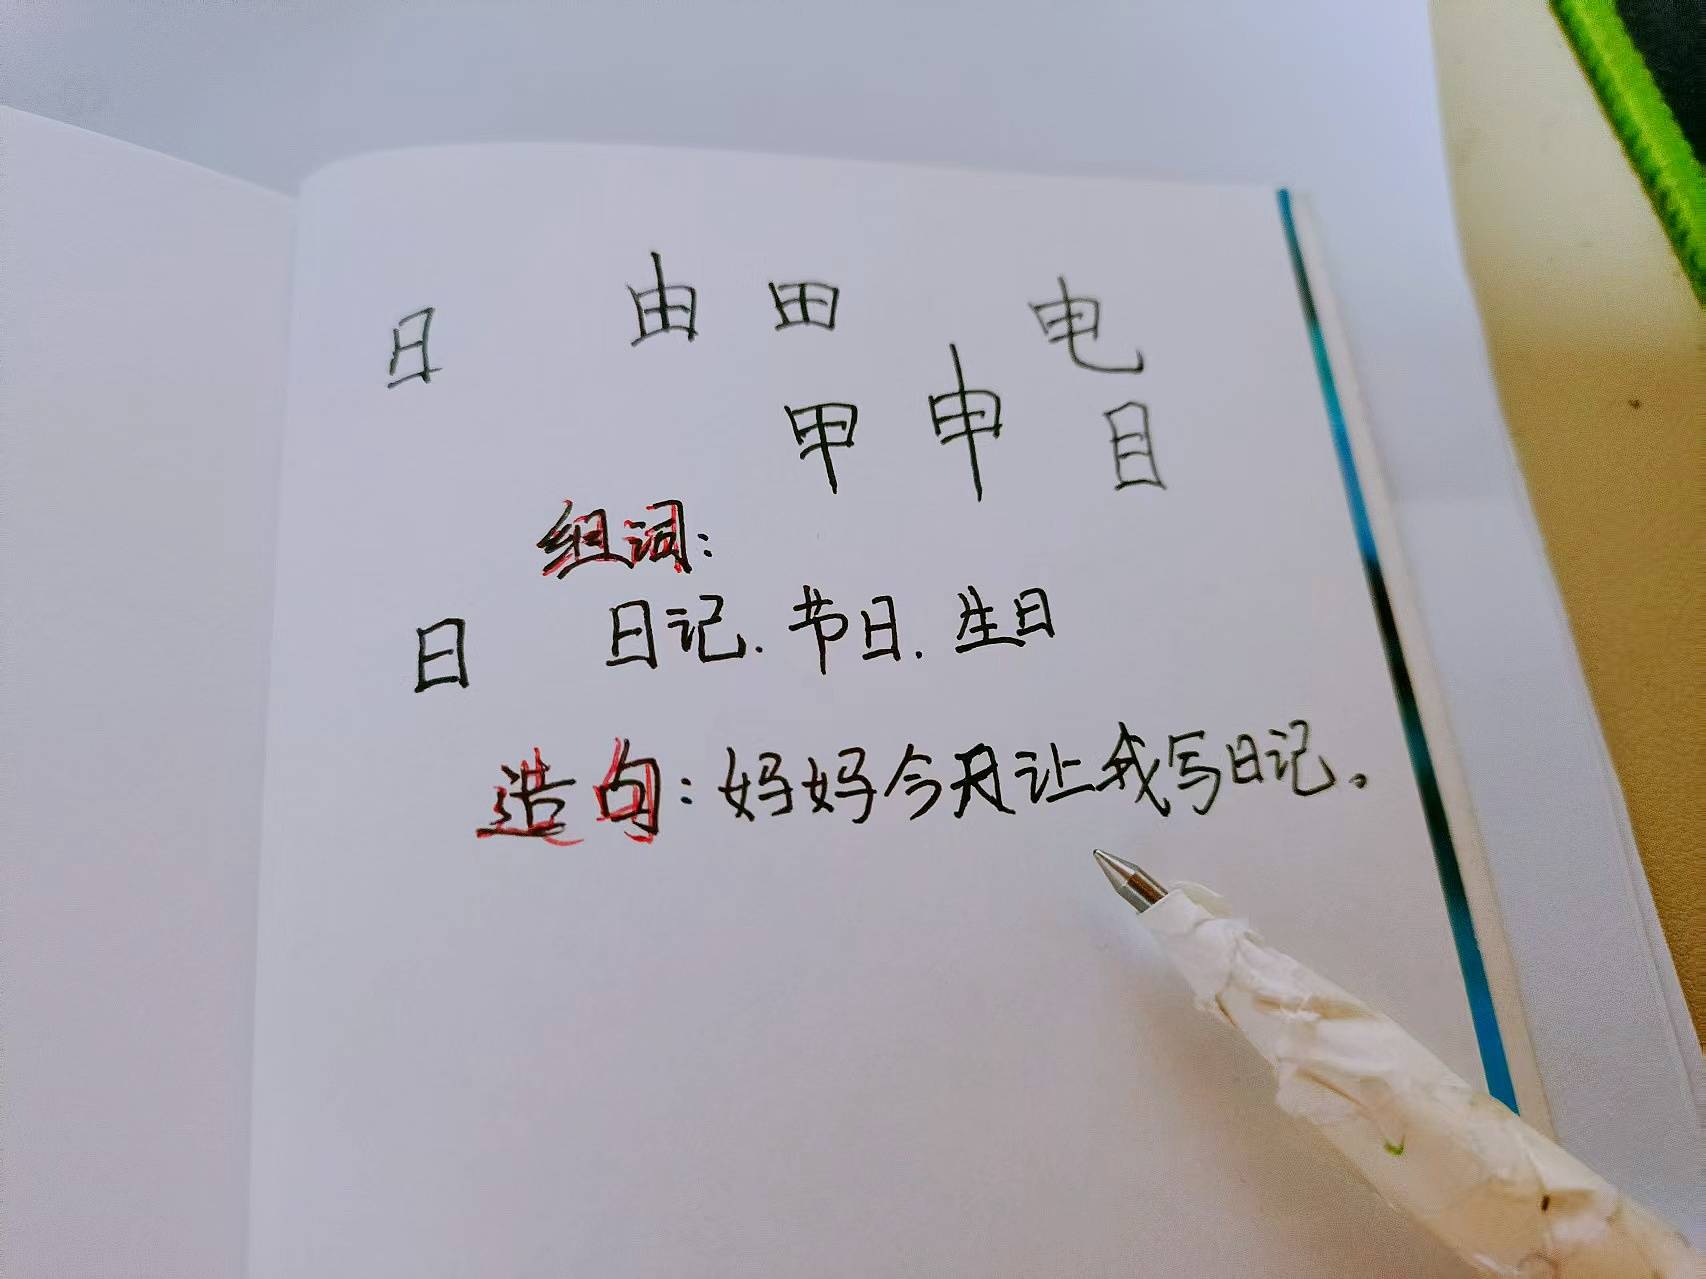 日 由 田 电
甲 申 目
组词:
日 日记. 节日. 生日
造句: 妈妈今天让我写日记。